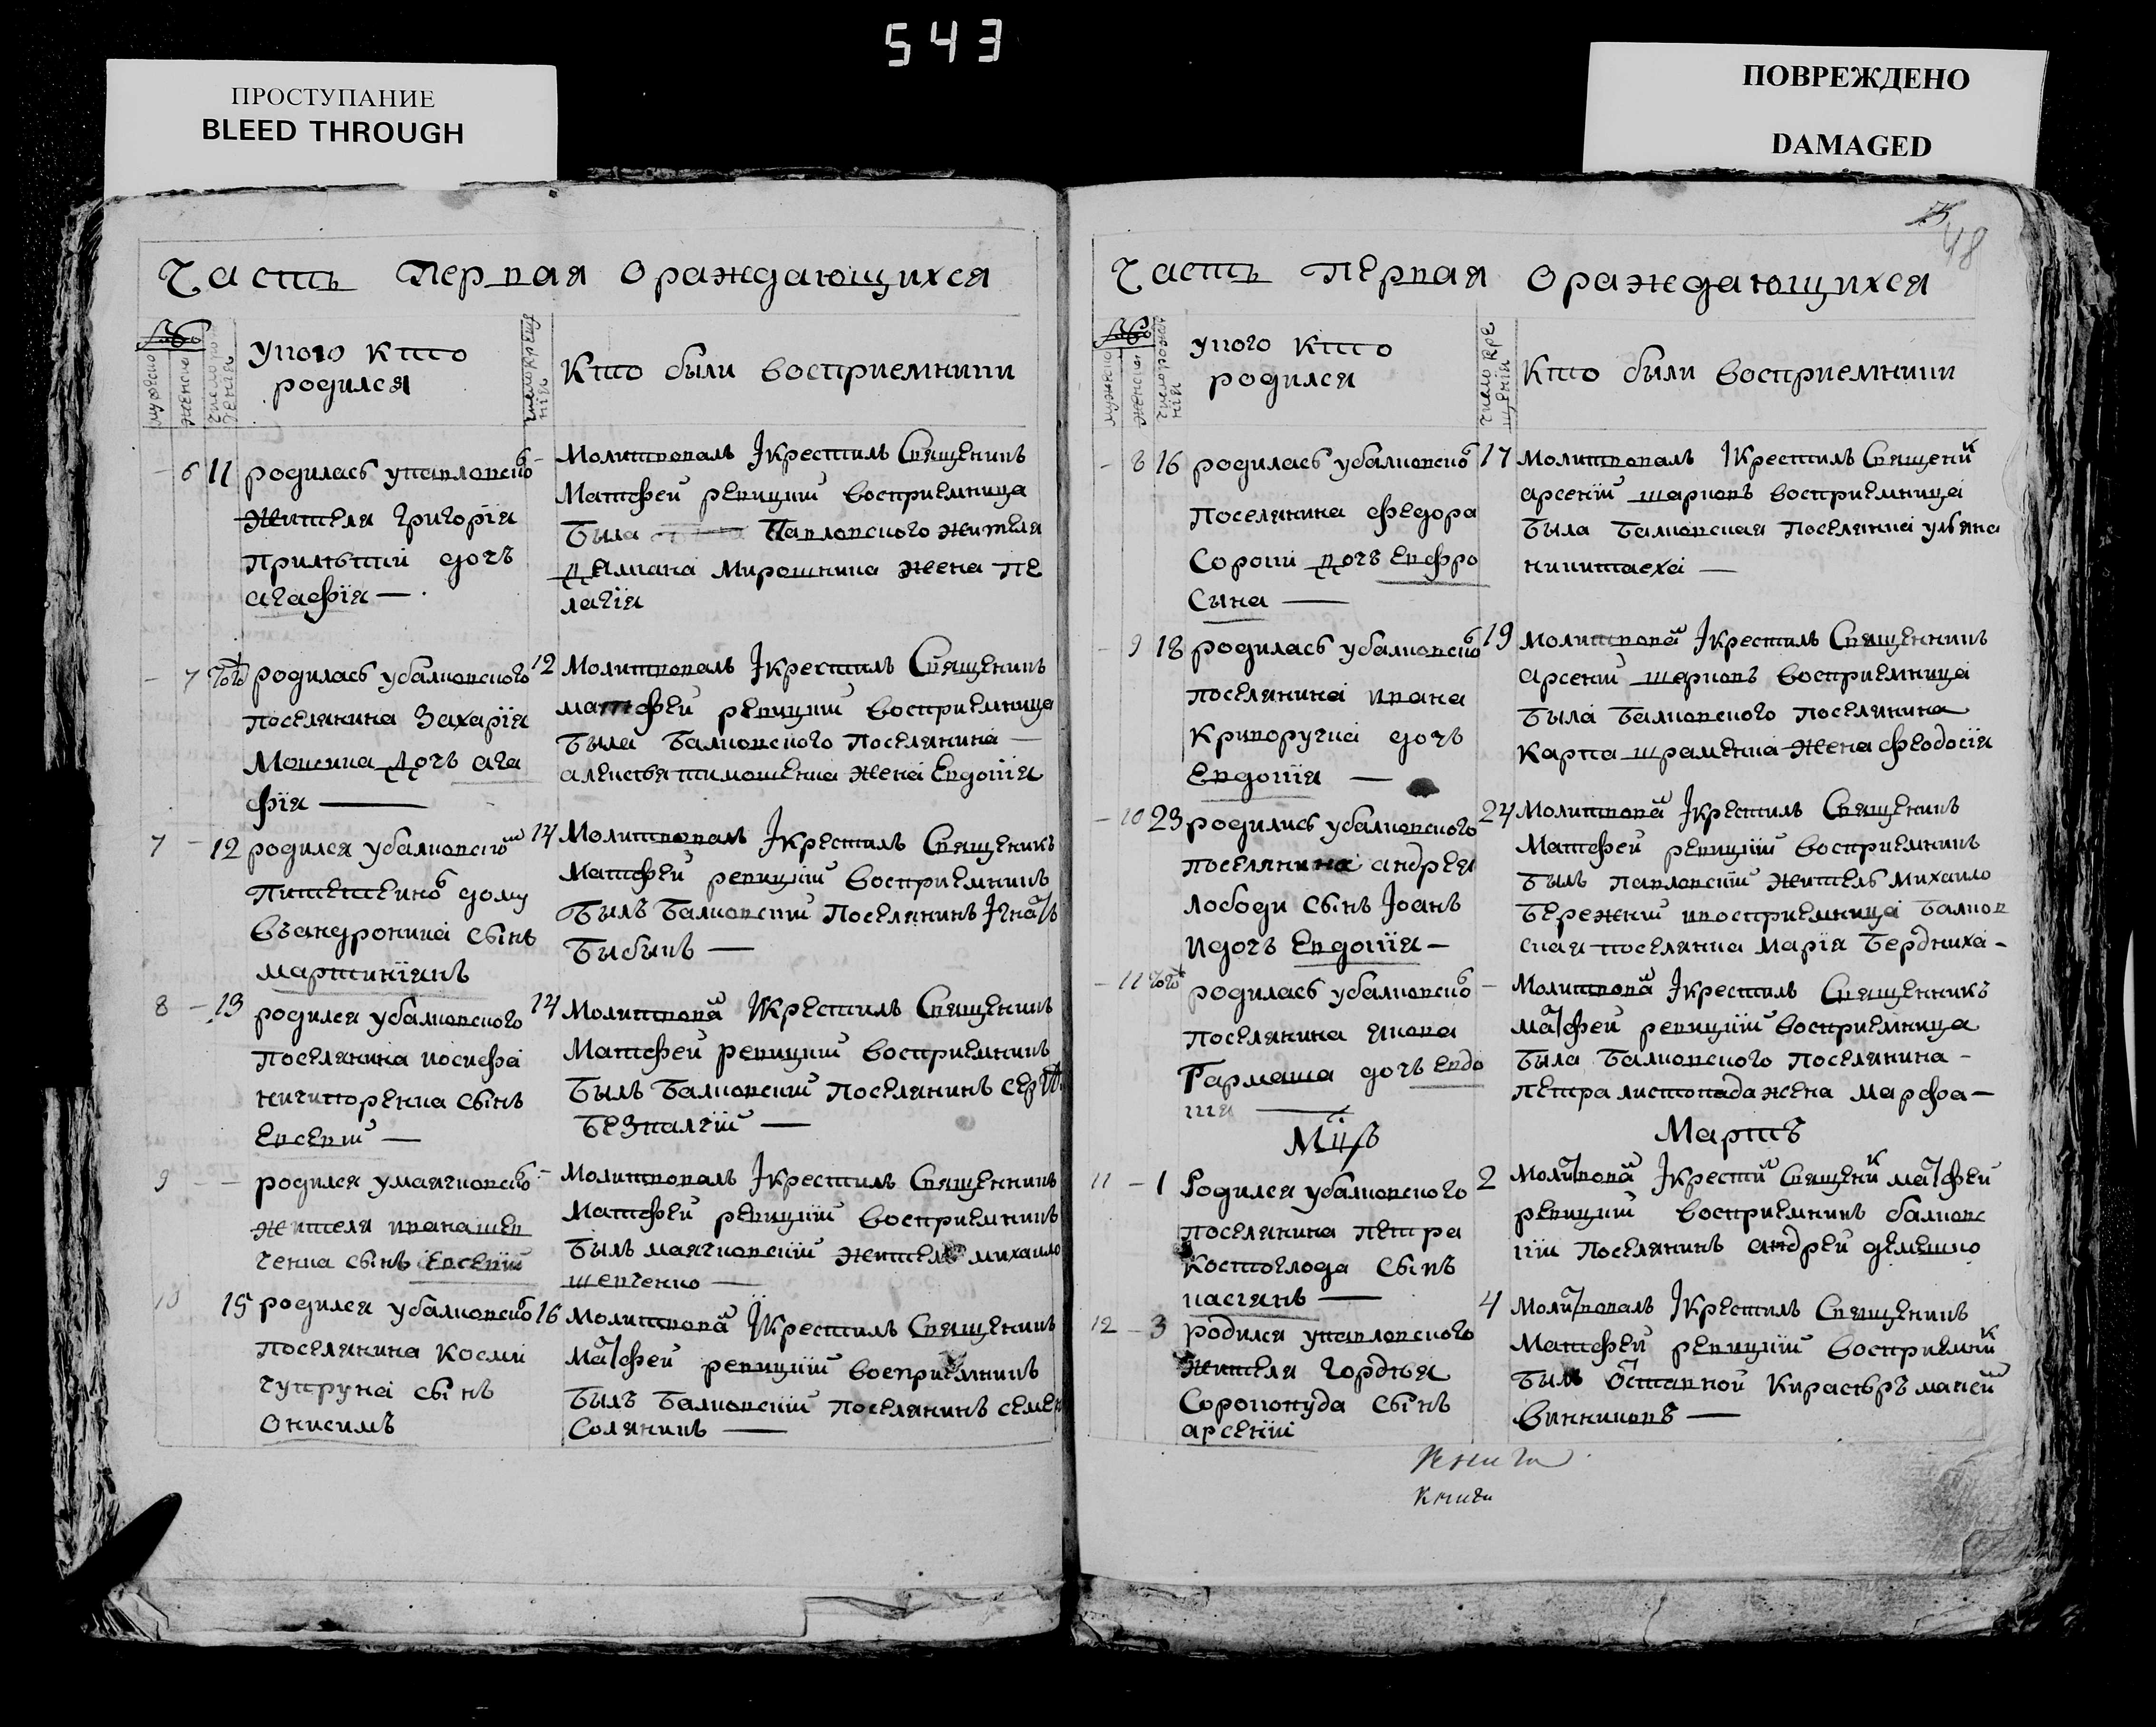 543
ПРОСТУПАНИЕ
BLEED THROUGH
ПОВРЕЖДЕНО
DAMAGED
48
Часть Первая Ораждающихся
укого кто
родился
Кто были восприемники
6 11 родилась упавловско
Жителя григорія
дочъ
агафія —
Молитвовалъ Iкрестилъ Священикъ
Матфей ревицкий восприемница
Была Павловского жителя
Дамиана Мирошника жена пе
лагія
7 того родилась убалковского
поселянина Захарія
дочъ ага
фія —
12 Молитвовалъ Iкрестилъ Священикъ
матфей ревицкий восприемница
была балковского поселянина —
алексѣя тимошенка жена Евдокія
7 – 12 родился убалковско
дому
сынъ
мартиніянъ
14 Молитвовалъ Iкрестилъ Священикъ
Матфей ревицкий восприемникъ
Былъ Балковский Поселянинъ
Быбыкъ —
8 – 13 родился убалковского
поселянина иосифа
ничипоренка сынъ
Евсевий —
14 Молитвова Iкрестилъ Священикъ
Матфей ревицкий восприемникъ
Былъ Балковский Поселянинъ
Безпалгій —
9 – – родился умаячковско
жителя ивана шев
ченка сынъ Евсевий
– Молитвовалъ Iкрестилъ Священникъ
Матфей ревицкий восприемникъ
Былъ маячковский житель михаило
шевченко —
10 15 родился убалковско
поселянина Косми
чупруна сынъ
Онисимъ
16 Молитвова Iкрестилъ Священикъ
Матфей ревицкий восприемникъ
Былъ Балковский поселянинъ семен
Соляникъ —
Часть Первая Ораждающихся
укого кто
родился
Кто были восприемники
– 8 16 родилась убалковско
поселянина федора
Сороки дочъ Евфро
сына —
17 Молитвовалъ Iкрестилъ Священик
арсений шарковъ восприемница
была Балковская поселянка ульяна
никитаеха —
– 9 18 родилась убалковско
поселянина ивана
Криворучка дочъ
Евдокія —
19 Молитвова Iкрестилъ Священникъ
арсений шарковъ восприемница
была балковского поселянина
Карпа шраменка жена феодосія
– 10 23 родились убалковского
поселянина андрея
лободи сынъ Iоанъ
идочъ Евдокія —
24 Молитвова Iкрестилъ Священикъ
Матфей ревицкий восприемникъ
былъ павловский житель михаило
Бережний ивосприемница балков
ская поселянка марія Бердниха –
– 11 того родилась убалковско
поселянина якова
Гармаша дочъ Евдо
кія —
– Молитвова Iкрестилъ Священникъ
матфей ревицкий восприемница
была балковского поселянина –
петра листопада жена марфа —
Мартъ
11 – 1 Родился убалковского
поселянина петра
Костоглода сынъ
касіянъ —
2 Молитвова Iкрести Священик матфей
ревицкий восприемникъ балковс
кий поселянинъ андрей демешко
12 – 3 родился упавловского
жителя гордѣя
Сорокопуда сынъ
арсений
4 Молитвовалъ Iкрестилъ Священикъ
Матфей ревицкий восприемник
Былъ Отставной Кирасѣръ
Винниковъ —
книги
книги